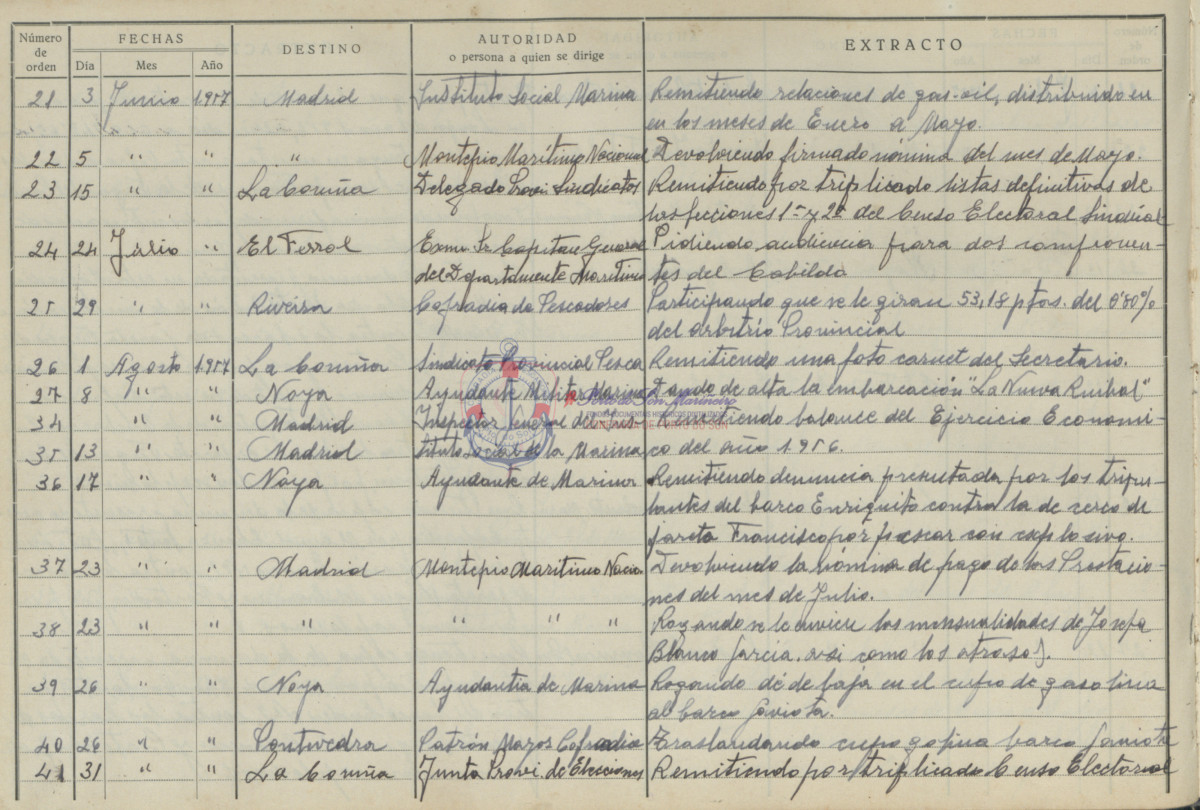 Número de orden FECHAS DESTINO AUTORIDAD EXTRACTO
Día Mes Año o persona a quien se dirige
21 3 Junio 1.957 Madrid Instituto Social Marina Remitiendo relaciones de gas-oil, distribuido en
en los meses de Enero a Mayo.
22 5 " " " Montepio Maritimo Nacional Devolviendo firmado nómina del mes de Mayo.
23 15 " " La Coruña Delegado Provi. Sindicatos Remitiendo por triplicado listas definitivas de
las secciones 1ª y 2ª del Censo Electoral Sindical
24 24 Julio " El Ferrol Exmo. Sr. Capitan General Pidiendo audiencia para dos componen-
del Departamente Maritimo tes del Cabildo
25 29 " " Riveira Cofradia de Pescadores Participando que se le giran 53,18 ptas. del 0'80%
del arbitrio Provincial
26 1 Agosto 1.957 La Coruña Sindicato Provincial Pesca Remitiendo una foto carnet del Secretario.
27 8 " " Noya Ayudante Militar Marina Dando de alta la embarcación "La Nueva Ruibal"
34 " " Madrid Inspector General del Ins- Remitiendo balance del Ejercicio Economi-
35 13 " " Madrid tituto Social de la Marina co del año 1.956.
36 17 " " Noya Ayudante de Marina Remitiendo denuncia presentada por los tripu-
lantes del barco Enriquito contra la de cerco de
jareta Francisco por pescar con explosivo.
37 23 " " Madrid Montepio Maritimo Nacio. Devolviendo la nómina de pago de las Prestacio-
nes del mes de Julio.
38 23 " " " " " " Rogando se le envieu las mensualidades de Josefa
Blanco Garcia, asi como los atrasos.
39 26 " " Noya Ayudantia de Marina Rogando dé de baja en el cupo de gasolina
al barco Gaviota.
40 26 " " Pontevedra Patrón Mayor Cofradia Trasladando cupo barco Gaviota
41 31 " " La Coruña Junta Provi. de Elecciones Remitiendo por triplicado Censo Electoral
Porto do Son Marineiro